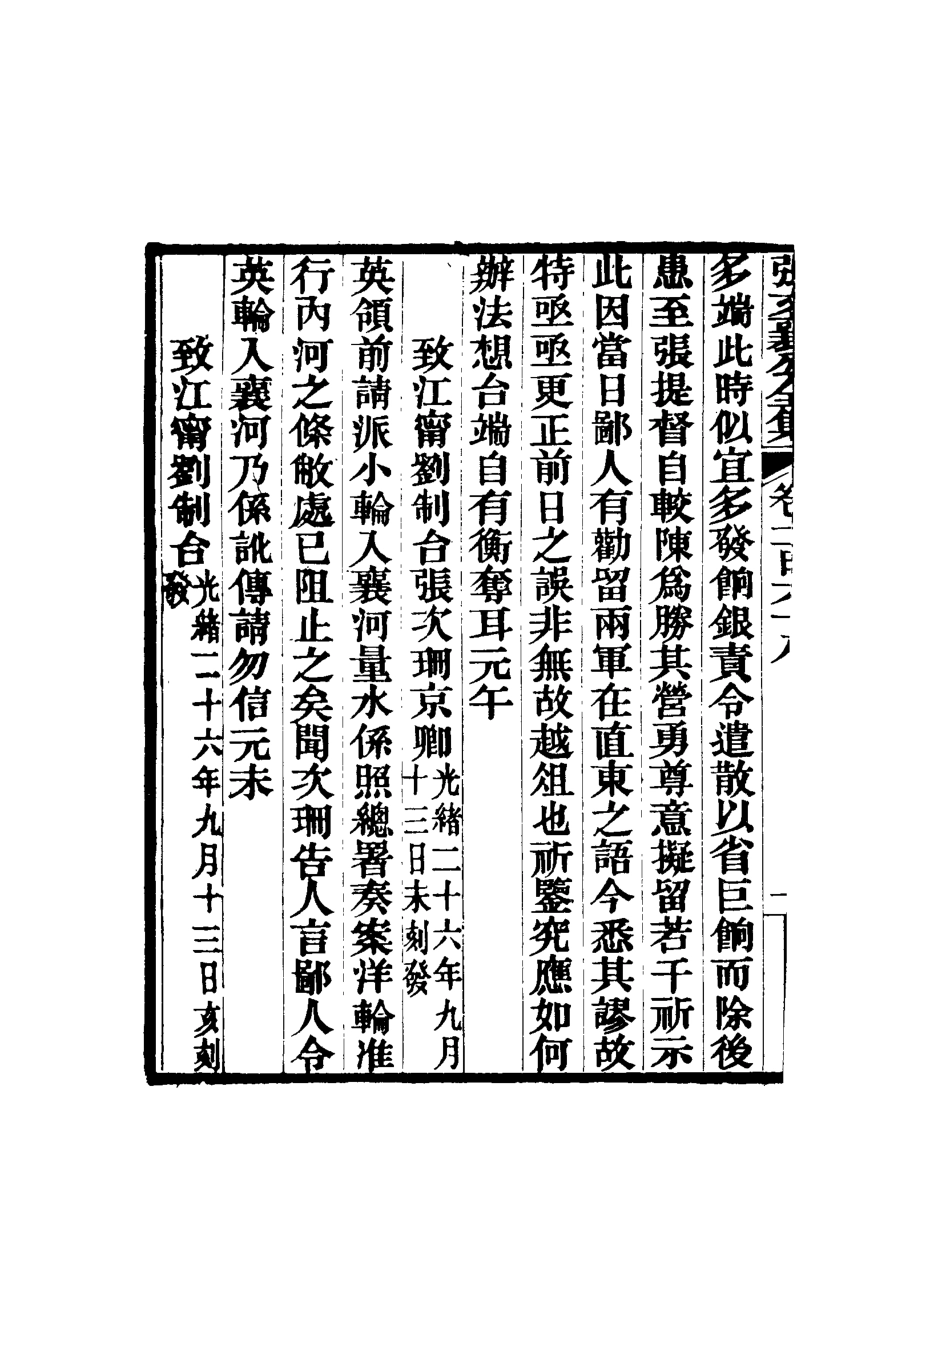 張文襄公全集 卷一百六十八 一
多端此時似宜多發餉銀責令遣散以省巨餉而除後
患至張提督自較陳爲勝其營勇尊意擬留若干祈示
此因當日鄙人有勸留兩軍在直東之語今悉其謬故
特亟亟更正前日之誤非無故越俎也祈鑒究應如何
辦法想台端自有衡奪耳元午
致江甯劉制台張次珊京卿光緒二十六年九月十三日未刻發
英領前請派小輪入襄河量水係照總署奏案洋輪准
行內河之條敝處已阻止之矣聞次珊告人言鄙人令
英輪入襄河乃係訛傳請勿信元未
致江甯劉制台光緒二十六年九月十三日亥刻發